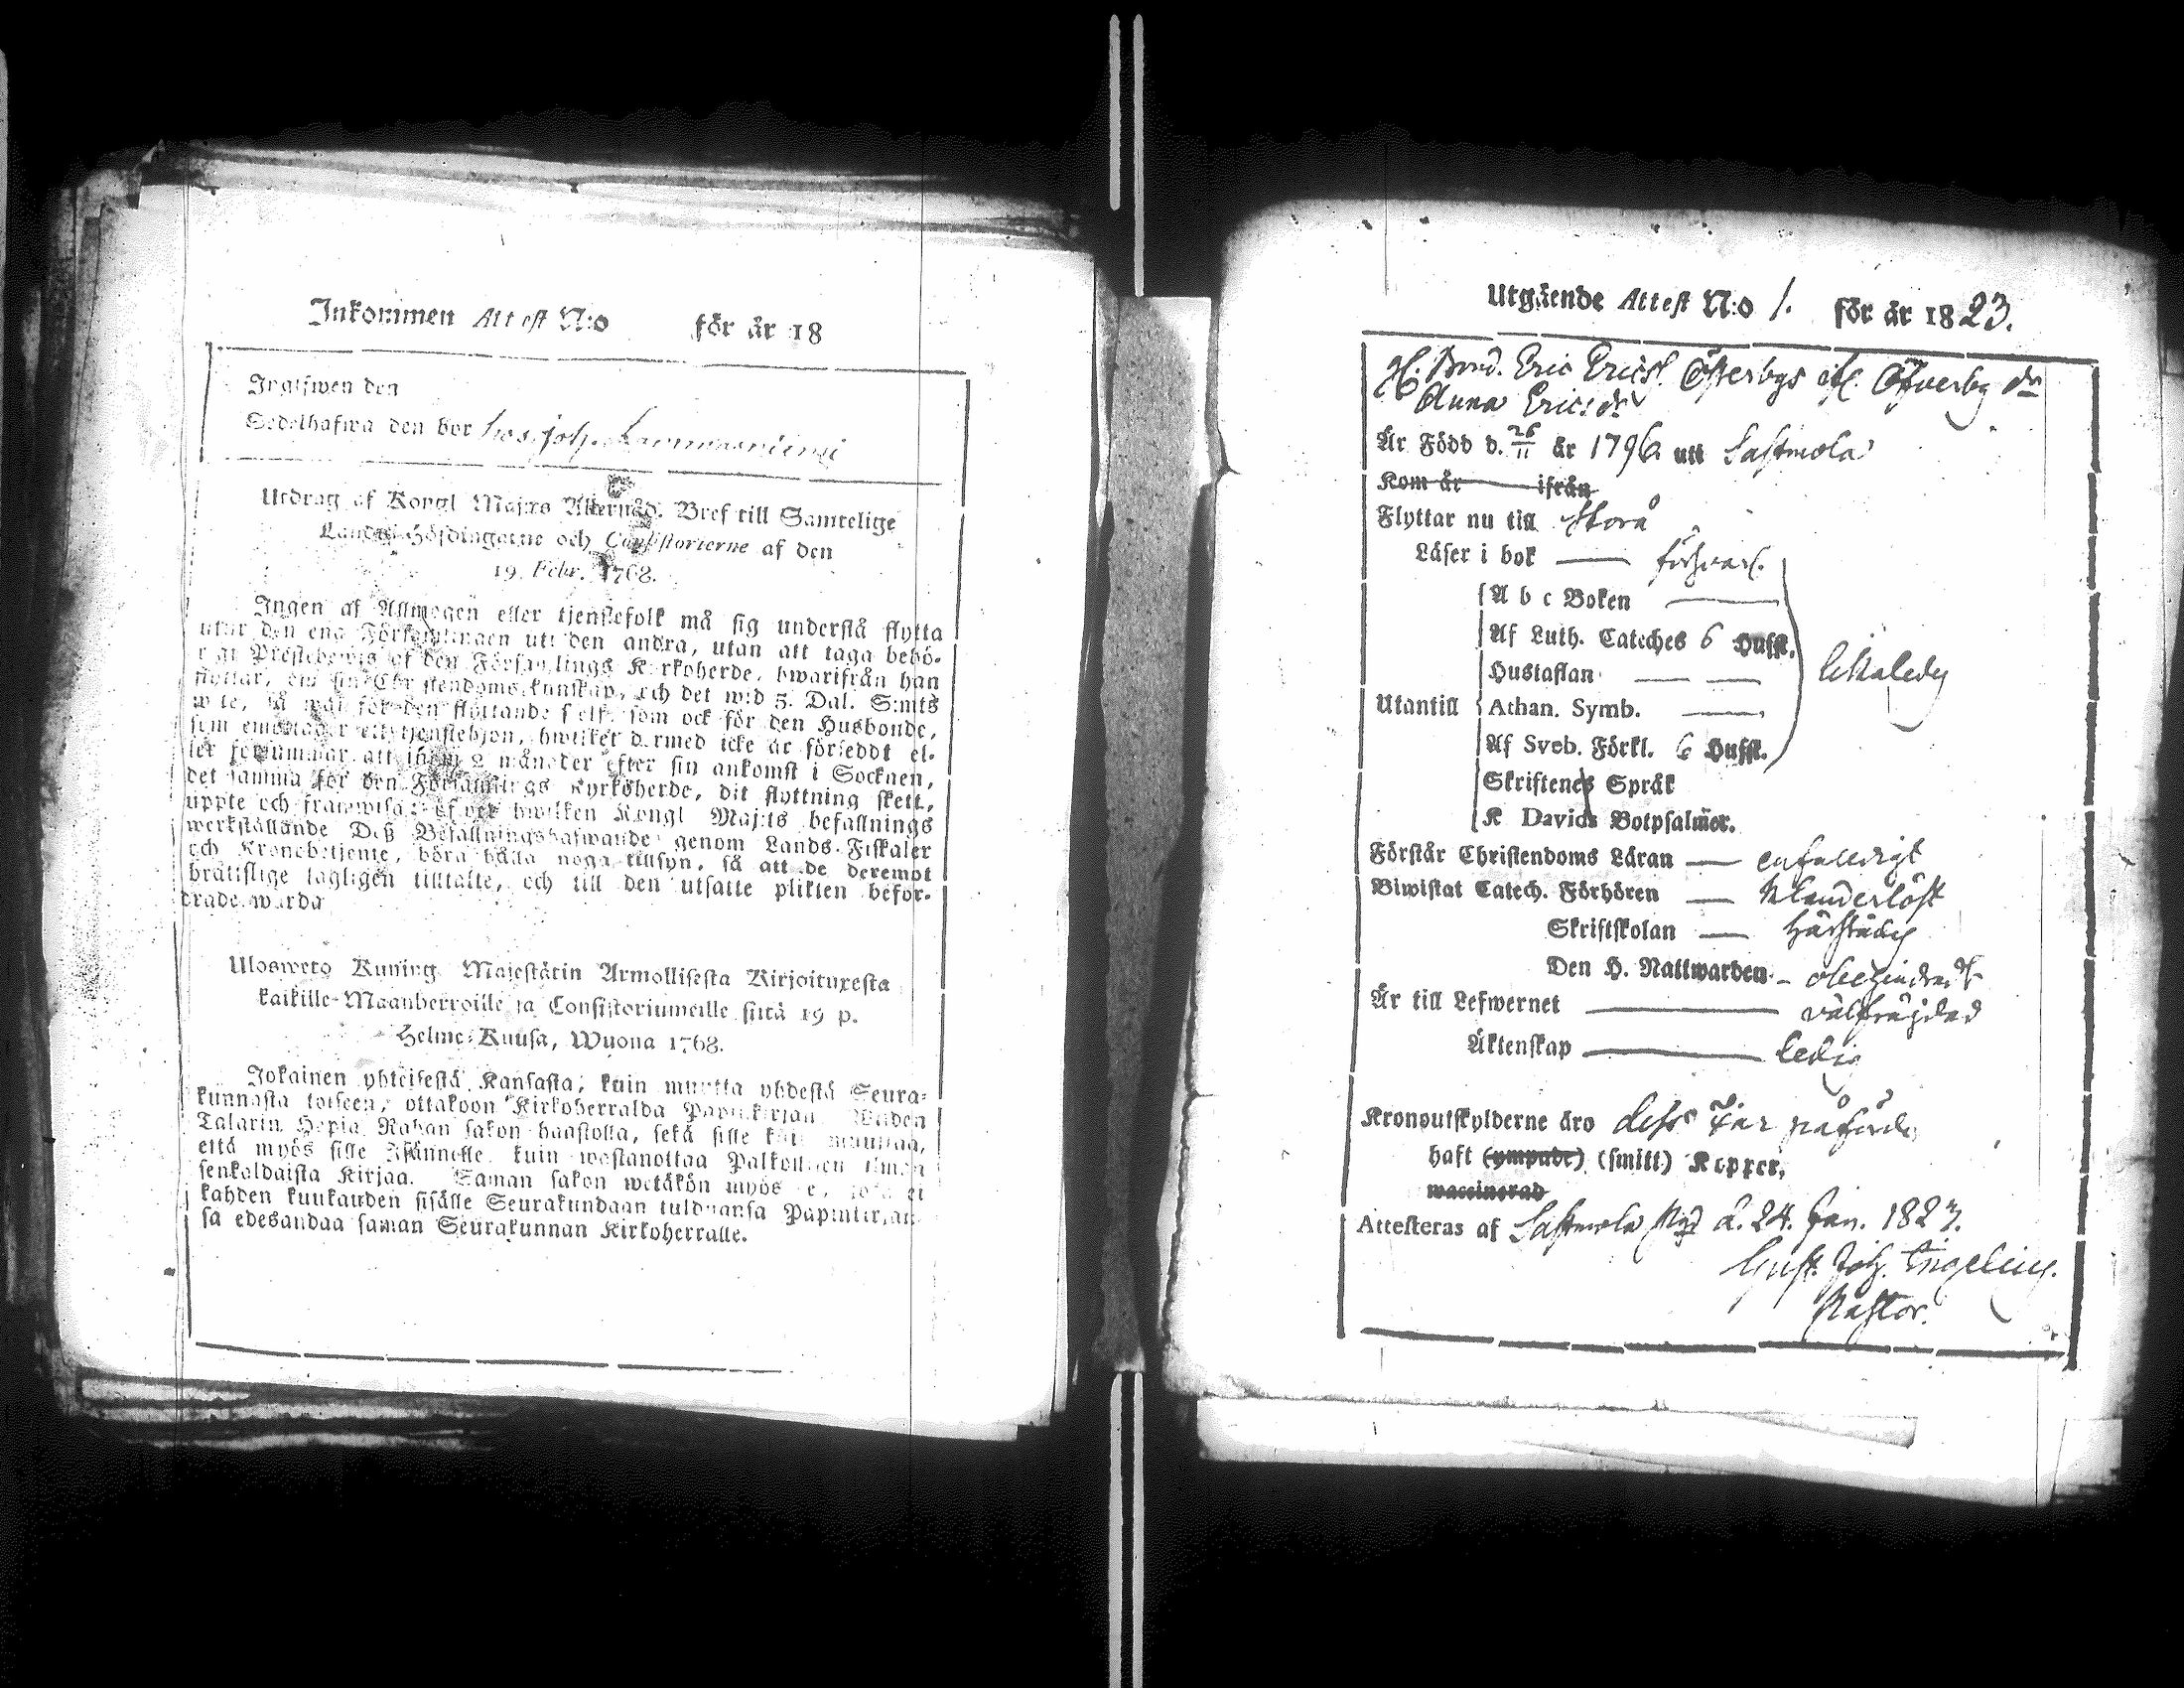 Inkommen Attest N:o för år 18
Ingifwen den
Sedelhafwa den bor hos Joh.
Utdrag af Kongl Maj:ts Allernåd. Bref till Samtelige
Lands-Höfdingarne och Consistorierne af den
19. Febr. 1768.
Ingen af Allmogen eller tjenstefolk må sig understå flytta
utur den ena Församlingen uti den andra, utan att taga behö-
rigt Prestebewis af den Församlings Kyrkoherde, hwarifrån han
flyttar, om sin Christendoms kunskap, och det wid 3. Dal. S:mts
wite, så wäl för den flyttande sjelf, som ock för den Husbonde,
som emottager ett tjenstehjon, hwilket dermed icke är försedt el-
ler försummar att inom 2 månader efter sin ankomst i Socknen,
det samma för den Församlings Kyrkoherde, dit flyttning skett,
uppte och framwisa: öfwer hwilken Kongl Maj:ts befallnings
werkställande Deß Befallningshafwande genom Lands-Fiskaler
och Kronobetjente, böra hålla noga tillsyn, så att de deremot
brättslige lagligen tilltalte, och till den utsatte plikten befor-
drade warda
Uloswetö Kuning. Majestätin Armollisesta Kirjoituxesta
kaikille Maanherroille ja Consistoriumeille siitä 19 p.
Helme-Kuusa, Wuona 1768.
Jokainen yhteisestä Kansasta, kuin muutta yhdestä Seura-
kunnasta toiseen, ottakoon Kirkoherralda Papinkirjan Wiiden
Talarin Hopia Rahan sakon haastolla, sekä sille kuin muuttaa,
että myös sille Isännelle kuin wastanottaa Palkollisen ilman
senkaldaista Kirjaa. Saman sakon wetäkön myös se, joka ei
kahden kuukauden sisälle Seurakundaan tulduansa Papinkirjaan-
sa edesandaa saman Seurakunnan Kirkoherralle.
Utgående Attest N:o 1. för år 1823.
Bond. Eric Ericss. Österbys Öfwerby dr
Anna Ericsdr
Är Född d. 26/11 år 1796 uti Sastmola
Kom år ifrån
Flyttar nu till Storå
Läser i bok förswarl.
A b c Boken
Af Luth. Cateches 6 Hufst.
Hustaflan
Utantill Athan. Symb.
Af Sveb. Förkl. 6 Hufst.
Skriftenes Språk
K Davids Botpsalmer.
Förstår Christendoms Läran enfaldigt
Biwistat Catech. Förhören klanderlöst
Skriftskolan härstädes
Den H. Nattwarden obehindradt
Är till Lefwernet välfräjdad
Äktenskap ledig
Kronoutskylderne äro dess Far påförde
haft (ympade) (smitt) Koppor,
waccinerad
Attesteras af Sastmola d. 24. Jan. 1823.
Gust. Joh. Engelius.
Pastor.